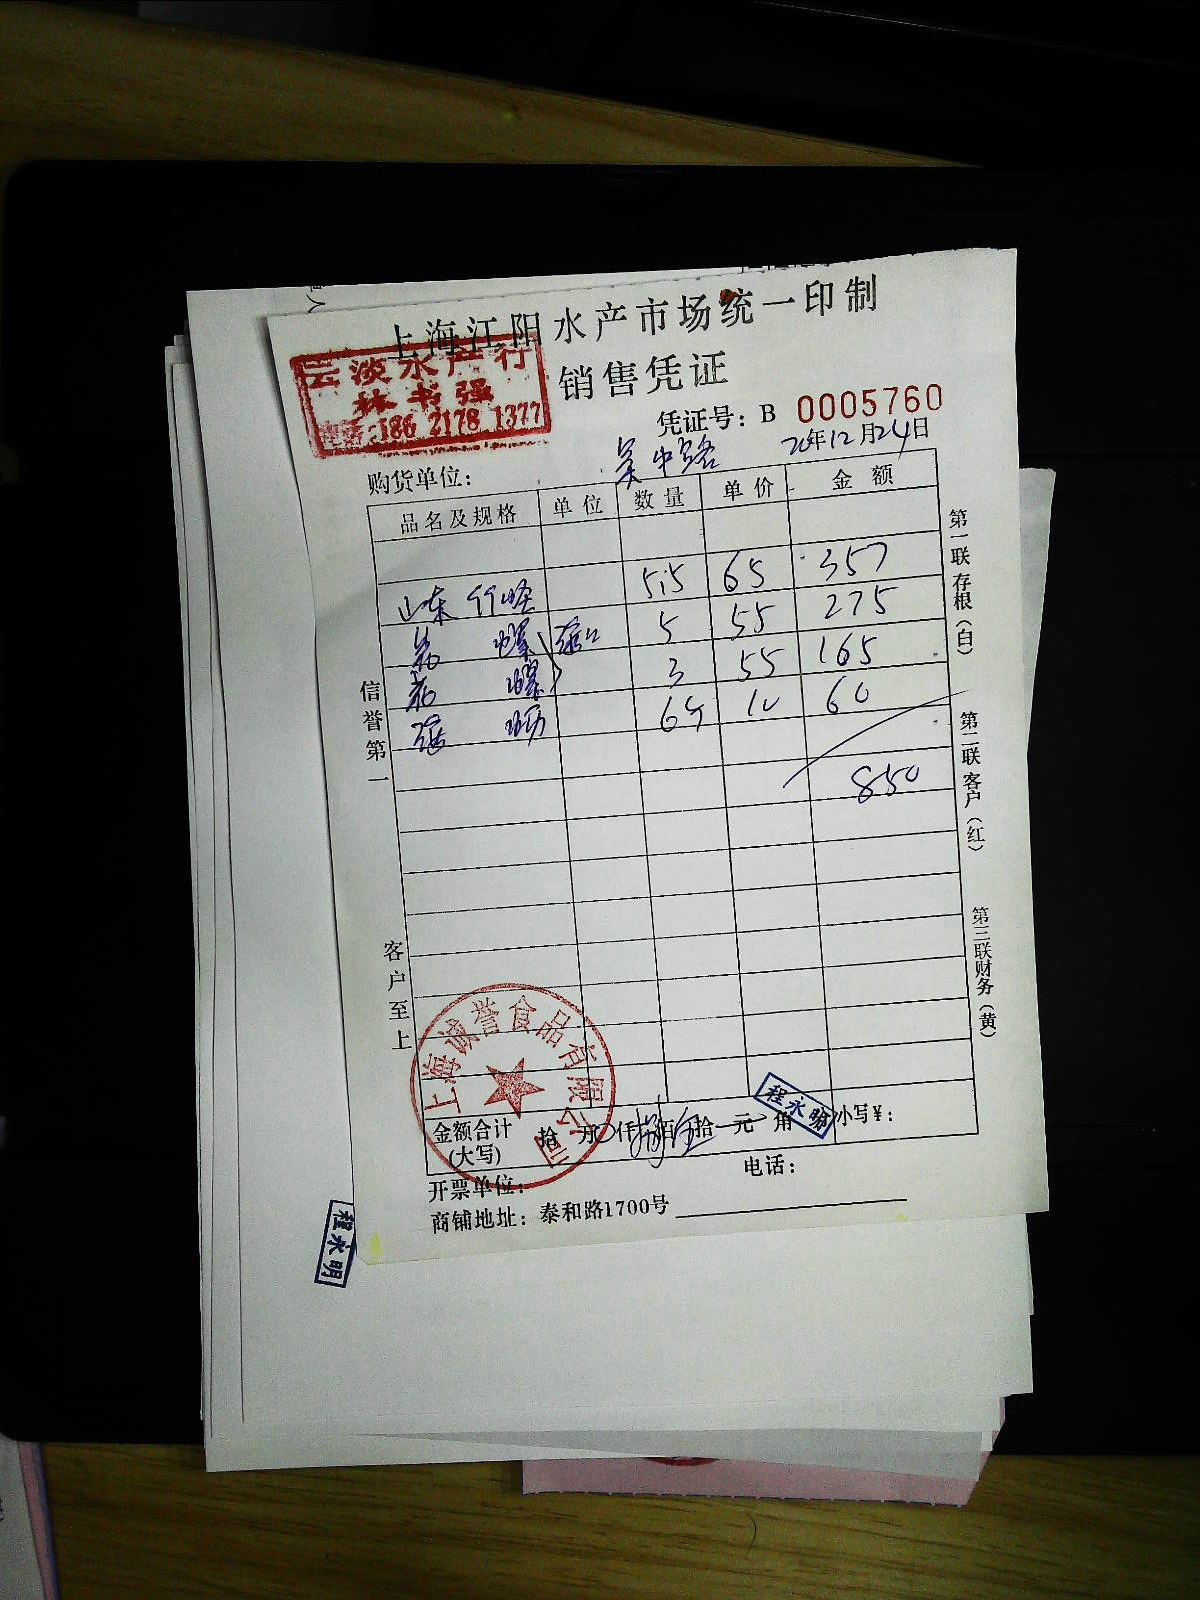 上海江阳水产市场统一印制
云淡水产行
林书强
电话:186 2178 1377
销售凭证
凭证号: B 0005760
购货单位: 吴中路
20年12月24日
品名及规格 单位 数量 单价 金额
山东竹蛏 5.5 65 357
花螺 5 55 275
花螺 3 55 165
6斤 10 60
850
信誉第一
客户至上
第一联存根(白)
第二联客户(红)
第三联财务(黄)
上海诚誉食品有限公司
金额合计(大写) 拾 万 仟 捌佰伍拾元 角
小写¥:
程永明
开票单位: 电话:
商铺地址: 泰和路1700号
程永明